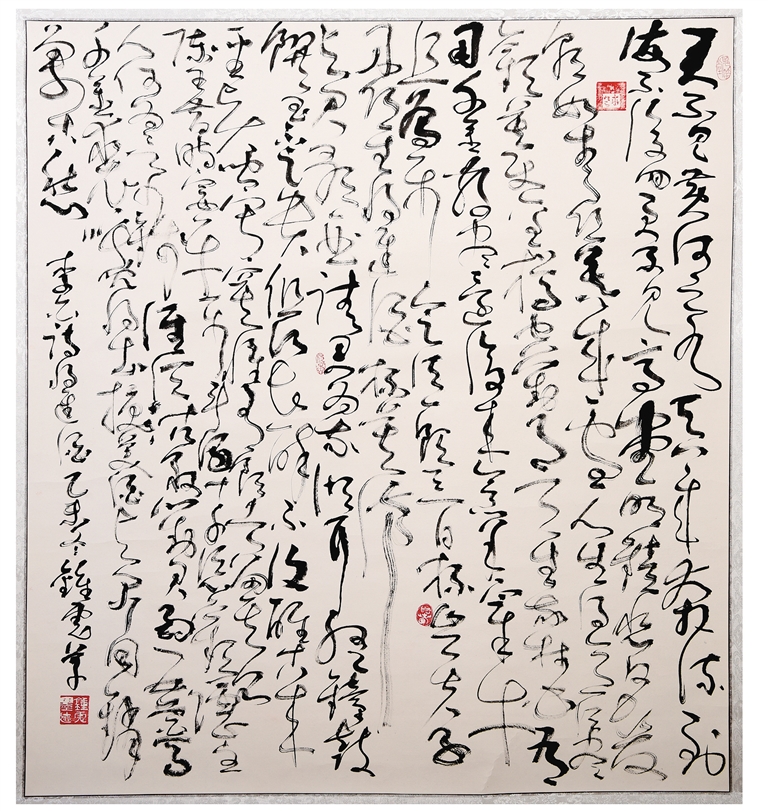 君不見黄河之水天上来奔流到
海不復回君不見高堂明鏡悲白髮
朝如青絲暮成雪人生得意須盡
歡莫使金樽空對月天生我材必有
用千金散盡還復来烹羊宰牛
且為樂會須一飲三百杯岑夫子
丹丘生將進酒杯莫停
與君歌一曲請君為我傾耳聽鐘鼓
饌玉不足貴但願長醉不復醒古来
聖賢皆寂寞惟有飲者留其名
陳王昔時宴平樂斗酒十千恣歡謔主
人何為言少錢徑須沽取對君酌五花馬
千金裘呼兒將出換美酒與爾同銷
萬古愁
李白詩將進酒乙未冬鍾草